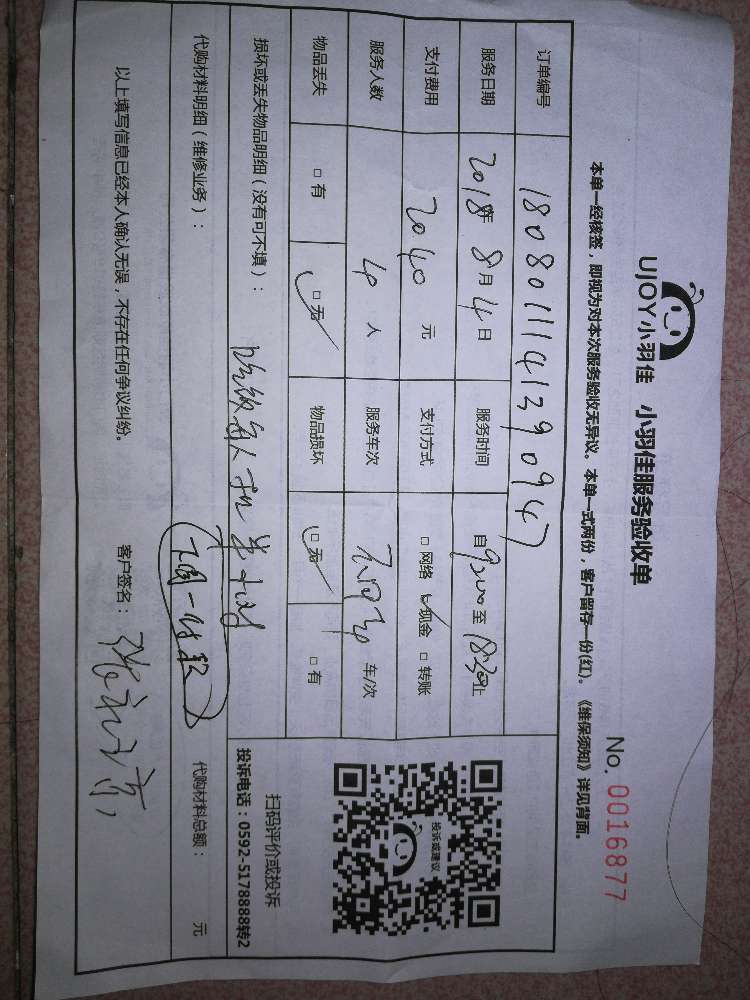 UJOY小羽佳 小羽佳服务验收单
No. 0016877
本单一经核签，即视为对本次服务验收无异议。本单一式两份，客户留存一份(红)。《维保须知》详见背面。
订单编号 180801114139094 7
服务日期 2018年 8月 4日 服务时间 自 9:00 至 18:30止
支付费用 2040 元 支付方式 □网络 ☑现金 □转账
服务人数 4 人 服务车次 车/次
物品丢失 □有 ☑无 物品损坏 ☑无 □有
损坏或丢失物品明细（没有可不填）：
代购材料明细（维修业务）：
代购材料总额： 元
以上填写信息已经本人确认无误，不存在任何争议纠纷。 客户签名：
投诉或建议
扫码评价或投诉
投诉电话：0592-5178888转2